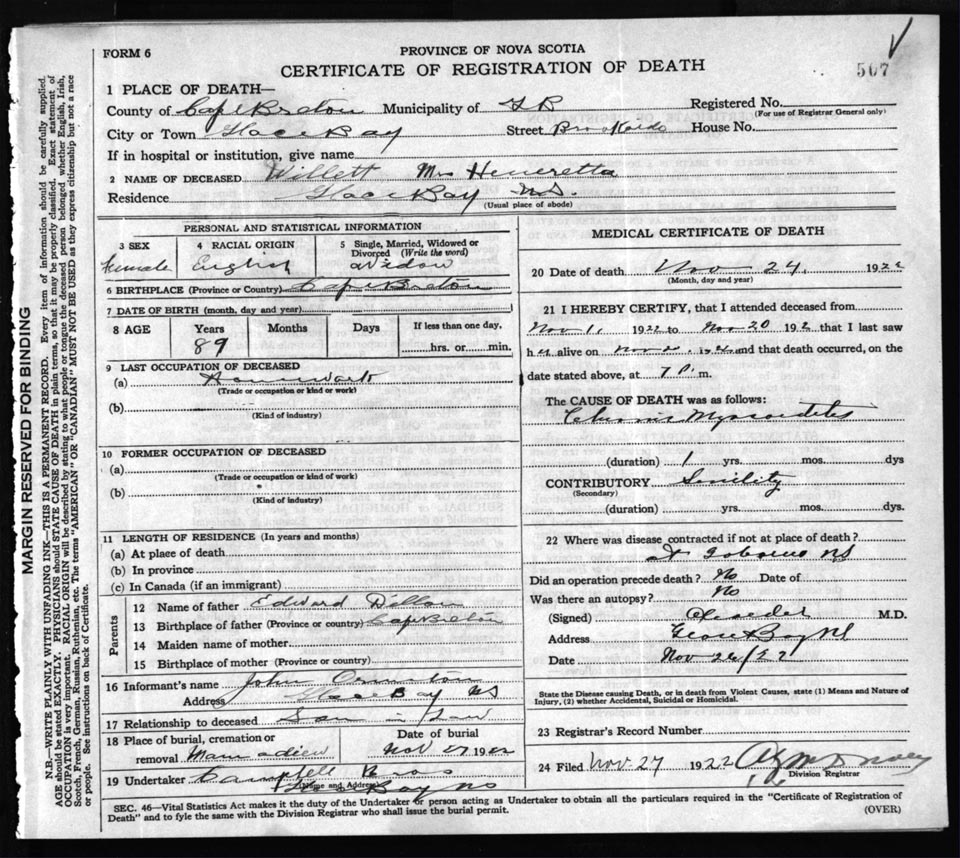 FORM 6
PROVINCE OF NOVA SCOTIA
CERTIFICATE OF REGISTRATION OF DEATH
507
MARGIN RESERVED FOR BINDING
N.B.—WRITE PLAINLY WITH UNFADING INK—THIS IS A PERMANENT RECORD. Every item of information should be carefully supplied.
AGE should be stated EXACTLY. PHYSICIANS should STATE CAUSE OF DEATH in plain terms, so that it may be properly classified. Exact statement of
OCCUPATION is very important. RACIAL ORIGIN will be described by stating to what people or tongue the deceased person belonged whether English, Irish,
Scotch, French, German, Russian, Ruthenian, etc. The terms "AMERICAN" OR "CANADIAN" MUST NOT BE USED as they express citizenship but not a race
or people. See instructions on back of Certificate.
1 PLACE OF DEATH—
County of Cape Breton Municipality of G B Registered No.
(For use of Registrar General only)
City or Town Glace Bay Street House No.
If in hospital or institution, give name
2 NAME OF DECEASED Willett Mrs Heneretta
Residence Glace Bay N.S.
(Usual place of abode)
PERSONAL AND STATISTICAL INFORMATION
3 SEX 4 RACIAL ORIGIN 5 Single, Married, Widowed or Divorced (Write the word)
Female English Widow
6 BIRTHPLACE (Province or Country) Cape Breton
7 DATE OF BIRTH (month, day and year)
8 AGE Years Months Days If less than one day,
89 hrs. or min.
9 LAST OCCUPATION OF DECEASED
(a) Housework
(Trade or occupation or kind or work)
(b)
(Kind of industry)
10 FORMER OCCUPATION OF DECEASED
(a)
(Trade or occupation or kind of work)
(b)
(Kind of industry)
11 LENGTH OF RESIDENCE (In years and months)
(a) At place of death
(b) In province
(c) In Canada (if an immigrant)
Parents
12 Name of father Edward Dillon
13 Birthplace of father (Province or country) Cape Breton
14 Maiden name of mother
15 Birthplace of mother (Province or country)
16 Informant's name John
Address Glace Bay NS
17 Relationship to deceased Son in Law
18 Place of burial, cremation or removal Date of burial
Nov 27 1922
19 Undertaker Campbell Bros
(Name and Address)
Bay NS
MEDICAL CERTIFICATE OF DEATH
20 Date of death Nov 24, 1922
(Month, day and year)
21 I HEREBY CERTIFY, that I attended deceased from
Nov 11 1922 to Nov 20 192 that I last saw
h er alive on and that death occurred, on the
date stated above, at 7 P. m.
The CAUSE OF DEATH was as follows:
Chronic Myocarditis
(duration) 1 yrs. mos. dys
CONTRIBUTORY Senility
(Secondary)
(duration) yrs. mos. dys.
22 Where was disease contracted if not at place of death?
NS
Did an operation precede death? No Date of
Was there an autopsy? No
(Signed) M.D.
Address Glace Bay NS
Date Nov 26/22
State the Disease causing Death, or in death from Violent Causes, state (1) Means and Nature of
Injury, (2) whether Accidental, Suicidal or Homicidal.
23 Registrar's Record Number
24 Filed Nov 27 1922
Division Registrar
SEC. 46—Vital Statistics Act makes it the duty of the Undertaker or person acting as Undertaker to obtain all the particulars required in the "Certificate of Registration of
Death" and to fyle the same with the Division Registrar who shall issue the burial permit.
(OVER)